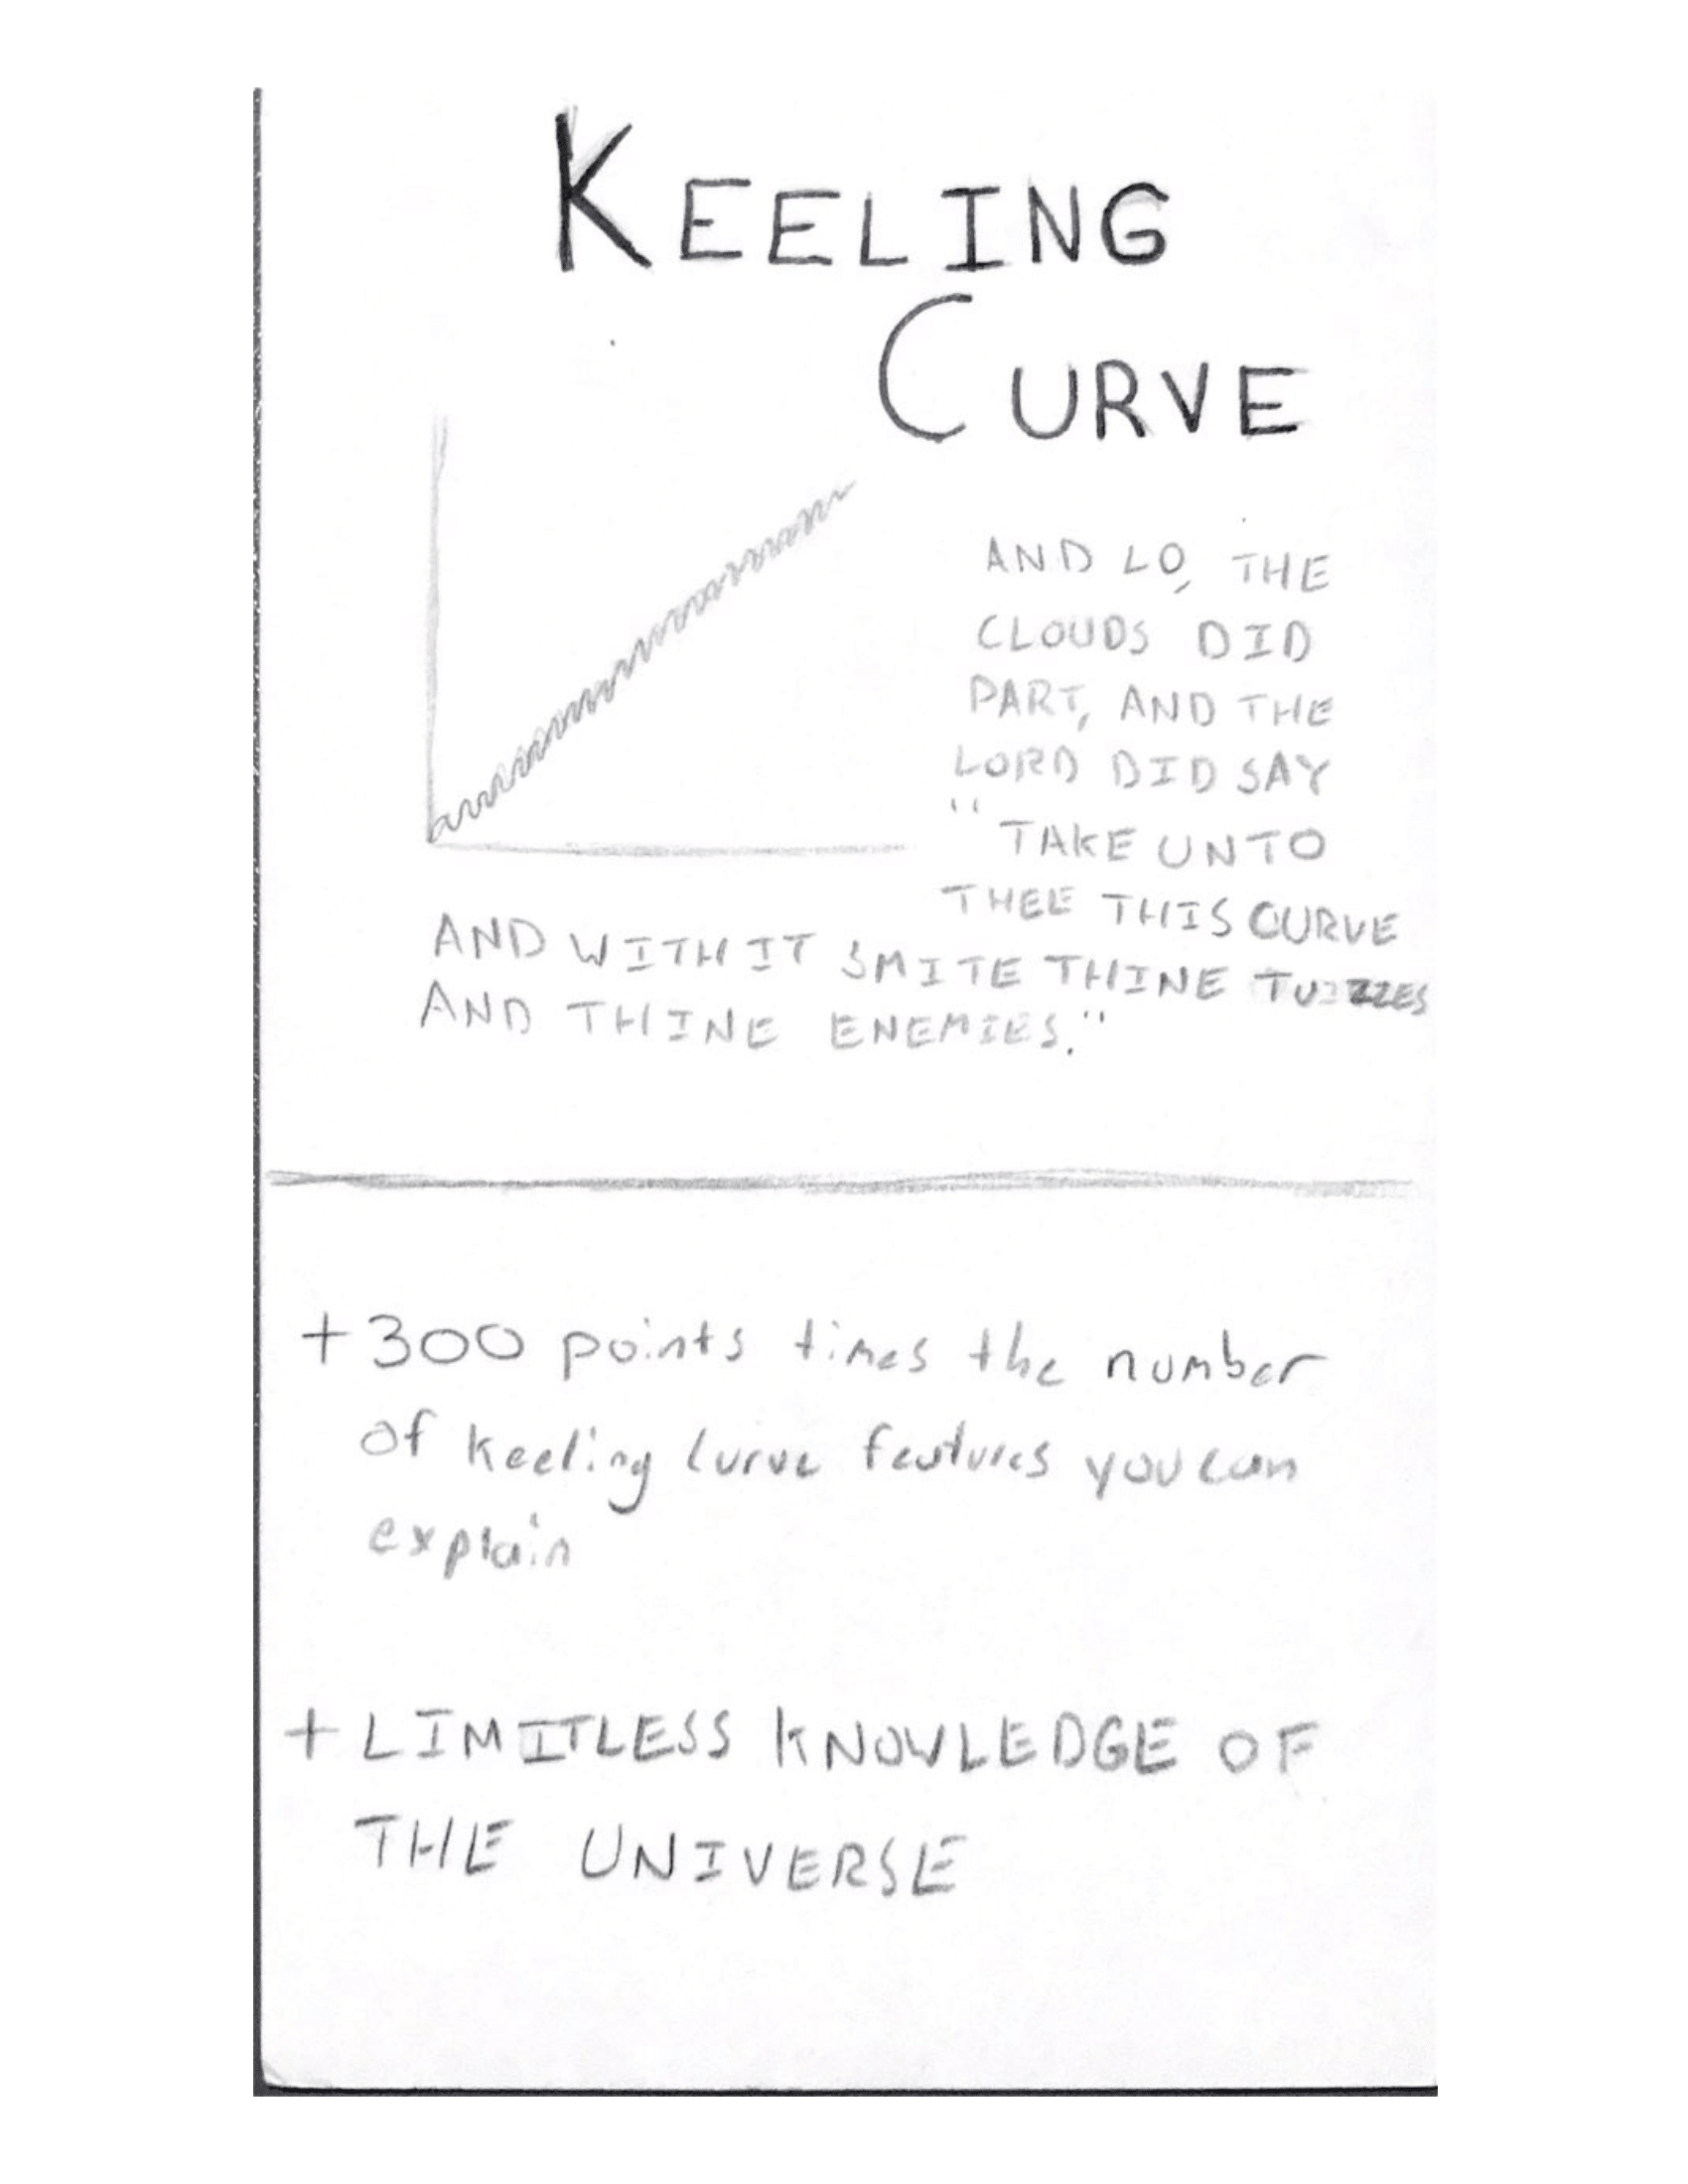 KEELING
CURVE
AND LO, THE
CLOUDS DID
PART, AND THE
LORD DID SAY
"TAKE UNTO
THEE THIS CURVE
AND WITH IT SMITE THINE
AND THINE ENEMIES."
+300 points times the number
of keeling curve features you can
explain
+ LIMITLESS KNOWLEDGE OF
THE UNIVERSE